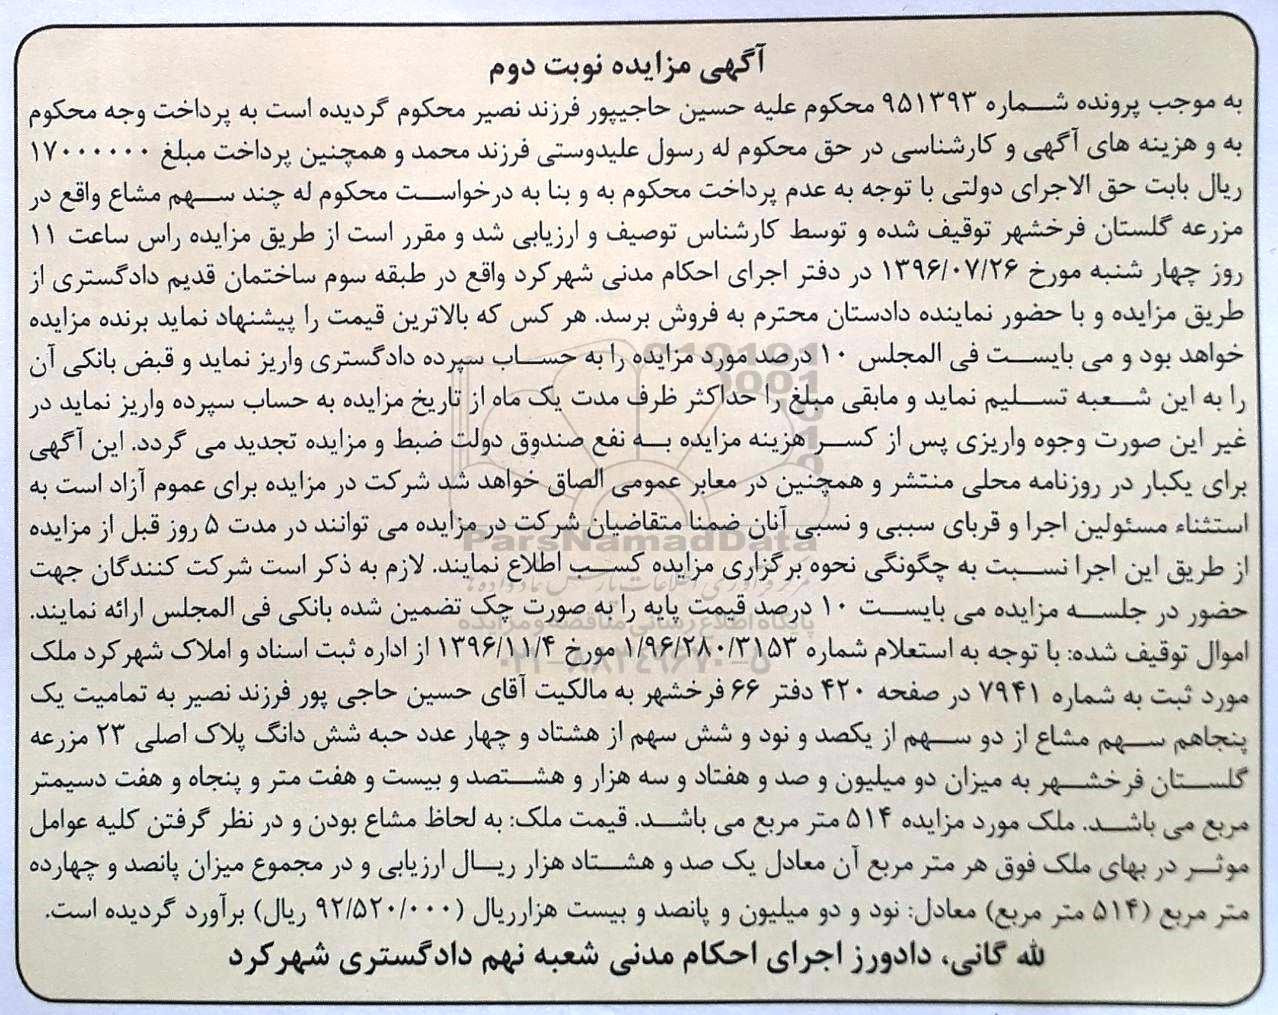 آگهی مزایده نوبت دوم
به موجب پرونده شماره ۹۵۱۳۹۳ محکوم علیه حسین حاجیپور فرزند نصیر محکوم گردیده است به پرداخت وجه محکوم
به و هزینه های آگهی و کارشناسی در حق محکوم له رسول علیدوستی فرزند محمد و همچنین پرداخت مبلغ ۱۷۰۰۰۰۰۰
ریال بابت حق الاجرای دولتی با توجه به عدم پرداخت محکوم به و بنا به درخواست محکوم له چند سهم مشاع واقع در
مزرعه گلستان فرخشهر توقیف شده و توسط کارشناس توصیف و ارزیابی شد و مقرر است از طریق مزایده راس ساعت ۱۱
روز چهار شنبه مورخ ۱۳۹۶/۰۷/۲۶ در دفتر اجرای احکام مدنی شهرکرد واقع در طبقه سوم ساختمان قدیم دادگستری از
طریق مزایده و با حضور نماینده دادستان محترم به فروش برسد. هر کس که بالاترین قیمت را پیشنهاد نماید برنده مزایده
خواهد بود و می بایست فی المجلس ۱۰ درصد مورد مزایده را به حساب سپرده دادگستری واریز نماید و قبض بانکی آن
را به این شعبه تسلیم نماید و مابقی مبلغ را حداکثر ظرف مدت یک ماه از تاریخ مزایده به حساب سپرده واریز نماید در
غیر این صورت وجوه واریزی پس از کسر هزینه مزایده به نفع صندوق دولت ضبط و مزایده تجدید می گردد. این آگهی
برای یکبار در روزنامه محلی منتشر و همچنین در معابر عمومی الصاق خواهد شد شرکت در مزایده برای عموم آزاد است به
استثناء مسئولین اجرا و قربای سببی و نسبی آنان ضمنا متقاضیان شرکت در مزایده می توانند در مدت ۵ روز قبل از مزایده
از طریق این اجرا نسبت به چگونگی نحوه برگزاری مزایده کسب اطلاع نمایند. لازم به ذکر است شرکت کنندگان جهت
حضور در جلسه مزایده می بایست ۱۰ درصد قیمت پایه را به صورت چک تضمین شده بانکی فی المجلس ارائه نمایند.
اموال توقیف شده: با توجه به استعلام شماره ۱/۹۶/۲۸۰/۳۱۵۳ مورخ ۱۳۹۶/۱۱/۴ از اداره ثبت اسناد و املاک شهرکرد ملک
مورد ثبت به شماره ۷۹۴۱ در صفحه ۴۲۰ دفتر ۶۶ فرخشهر به مالکیت آقای حسین حاجی پور فرزند نصیر به تمامیت یک
پنجاهم سهم مشاع از دو سهم از یکصد و نود و شش سهم از هشتاد و چهار عدد حبه شش دانگ پلاک اصلی ۲۳ مزرعه
گلستان فرخشهر به میزان دو میلیون و صد و هفتاد و سه هزار و هشتصد و بیست و هفت متر و پنجاه و هفت دسیمتر
مربع می باشد. ملک مورد مزایده ۵۱۴ متر مربع می باشد. قیمت ملک: به لحاظ مشاع بودن و در نظر گرفتن کلیه عوامل
موثر در بهای ملک فوق هر متر مربع آن معادل یک صد و هشتاد هزار ریال ارزیابی و در مجموع میزان پانصد و چهارده
متر مربع (۵۱۴ متر مربع) معادل: نود و دو میلیون و پانصد و بیست هزارریال (۹۲/۵۲۰/۰۰۰ ریال) برآورد گردیده است.
لله گانی، دادورز اجرای احکام مدنی شعبه نهم دادگستری شهرکرد
ParsNamadData
پایگاه اطلاع رسانی مناقصه و مزایده